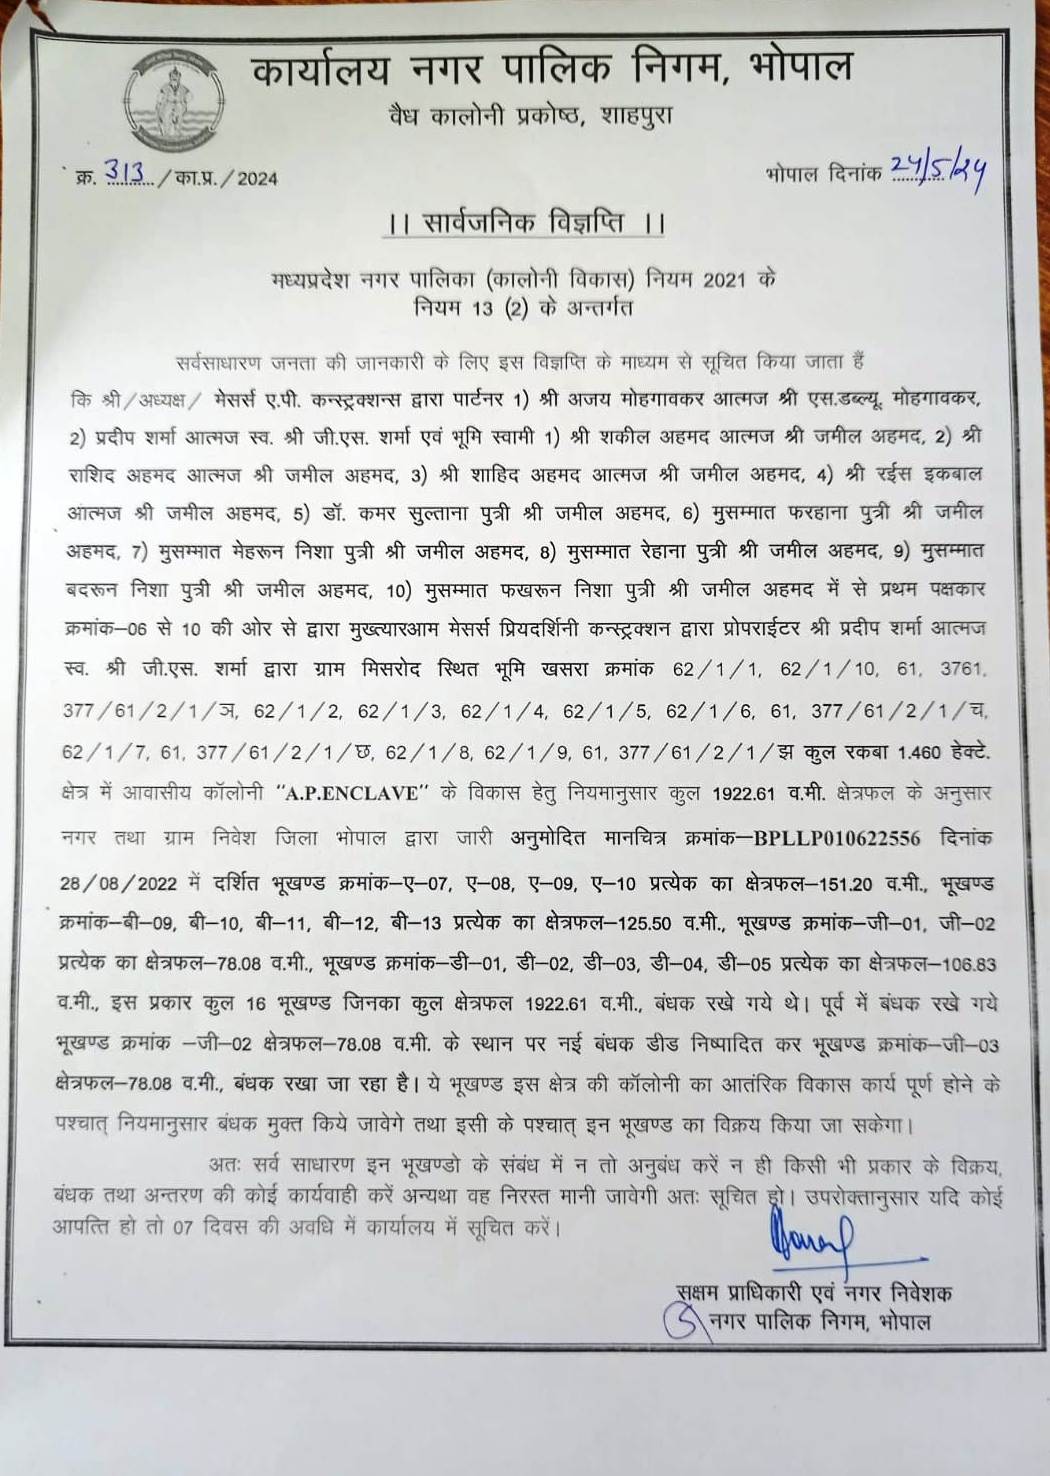 कार्यालय नगर पालिक निगम, भोपाल
वैध कालोनी प्रकोष्ठ, शाहपुरा
क्र. 313 /का.प्र./2024
भोपाल दिनांक 24/5/24
।। सार्वजनिक विज्ञप्ति ।।
मध्यप्रदेश नगर पालिका (कालोनी विकास) नियम 2021 के
नियम 13 (2) के अन्तर्गत
सर्वसाधारण जनता की जानकारी के लिए इस विज्ञप्ति के माध्यम से सूचित किया जाता हैं
कि श्री/अध्यक्ष/ मेसर्स ए.पी. कन्स्ट्रक्शन्स द्वारा पार्टनर 1) श्री अजय मोहगावकर आत्मज श्री एस.डब्ल्यू. मोहगावकर,
2) प्रदीप शर्मा आत्मज स्व. श्री जी.एस. शर्मा एवं भूमि स्वामी 1) श्री शकील अहमद आत्मज श्री जमील अहमद, 2) श्री
राशिद अहमद आत्मज श्री जमील अहमद, 3) श्री शाहिद अहमद आत्मज श्री जमील अहमद, 4) श्री रईस इकबाल
आत्मज श्री जमील अहमद, 5) डॉ. कमर सुल्ताना पुत्री श्री जमील अहमद, 6) मुसम्मात फरहाना पुत्री श्री जमील
अहमद, 7) मुसम्मात मेहरून निशा पुत्री श्री जमील अहमद, 8) मुसम्मात रेहाना पुत्री श्री जमील अहमद, 9) मुसम्मात
बदरून निशा पुत्री श्री जमील अहमद, 10) मुसम्मात फखरून निशा पुत्री श्री जमील अहमद में से प्रथम पक्षकार
क्रमांक–06 से 10 की ओर से द्वारा मुख्त्यारआम मेसर्स प्रियदर्शिनी कन्स्ट्रक्शन द्वारा प्रोपराईटर श्री प्रदीप शर्मा आत्मज
स्व. श्री जी.एस. शर्मा द्वारा ग्राम मिसरोद स्थित भूमि खसरा क्रमांक 62/1/1, 62/1/10, 61, 3761,
377/61/2/1/ञ, 62/1/2, 62/1/3, 62/1/4, 62/1/5, 62/1/6, 61, 377/61/2/1/च,
62/1/7, 61, 377/61/2/1/छ, 62/1/8, 62/1/9, 61, 377/61/2/1/झ कुल रकबा 1.460 हेक्टे.
क्षेत्र में आवासीय कॉलोनी "A.P.ENCLAVE" के विकास हेतु नियमानुसार कुल 1922.61 व.मी. क्षेत्रफल के अनुसार
नगर तथा ग्राम निवेश जिला भोपाल द्वारा जारी अनुमोदित मानचित्र क्रमांक–BPLLP010622556 दिनांक
28/08/2022 में दर्शित भूखण्ड क्रमांक–ए–07, ए–08, ए–09, ए–10 प्रत्येक का क्षेत्रफल–151.20 व.मी., भूखण्ड
क्रमांक–बी–09, बी–10, बी–11, बी–12, बी–13 प्रत्येक का क्षेत्रफल–125.50 व.मी., भूखण्ड क्रमांक–जी–01, जी–02
प्रत्येक का क्षेत्रफल–78.08 व.मी., भूखण्ड क्रमांक–डी–01, डी–02, डी–03, डी–04, डी–05 प्रत्येक का क्षेत्रफल–106.83
व.मी., इस प्रकार कुल 16 भूखण्ड जिनका कुल क्षेत्रफल 1922.61 व.मी., बंधक रखे गये थे। पूर्व में बंधक रखे गये
भूखण्ड क्रमांक –जी–02 क्षेत्रफल–78.08 व.मी. के स्थान पर नई बंधक डीड निष्पादित कर भूखण्ड क्रमांक–जी–03
क्षेत्रफल–78.08 व.मी., बंधक रखा जा रहा है। ये भूखण्ड इस क्षेत्र की कॉलोनी का आतंरिक विकास कार्य पूर्ण होने के
पश्चात् नियमानुसार बंधक मुक्त किये जावेगे तथा इसी के पश्चात् इन भूखण्ड का विक्रय किया जा सकेगा।
अतः सर्व साधारण इन भूखण्डो के संबंध में न तो अनुबंध करें न ही किसी भी प्रकार के विक्रय,
बंधक तथा अन्तरण की कोई कार्यवाही करें अन्यथा वह निरस्त मानी जावेगी अतः सूचित हो। उपरोक्तानुसार यदि कोई
आपत्ति हो तो 07 दिवस की अवधि में कार्यालय में सूचित करें।
सक्षम प्राधिकारी एवं नगर निवेशक
नगर पालिक निगम, भोपाल